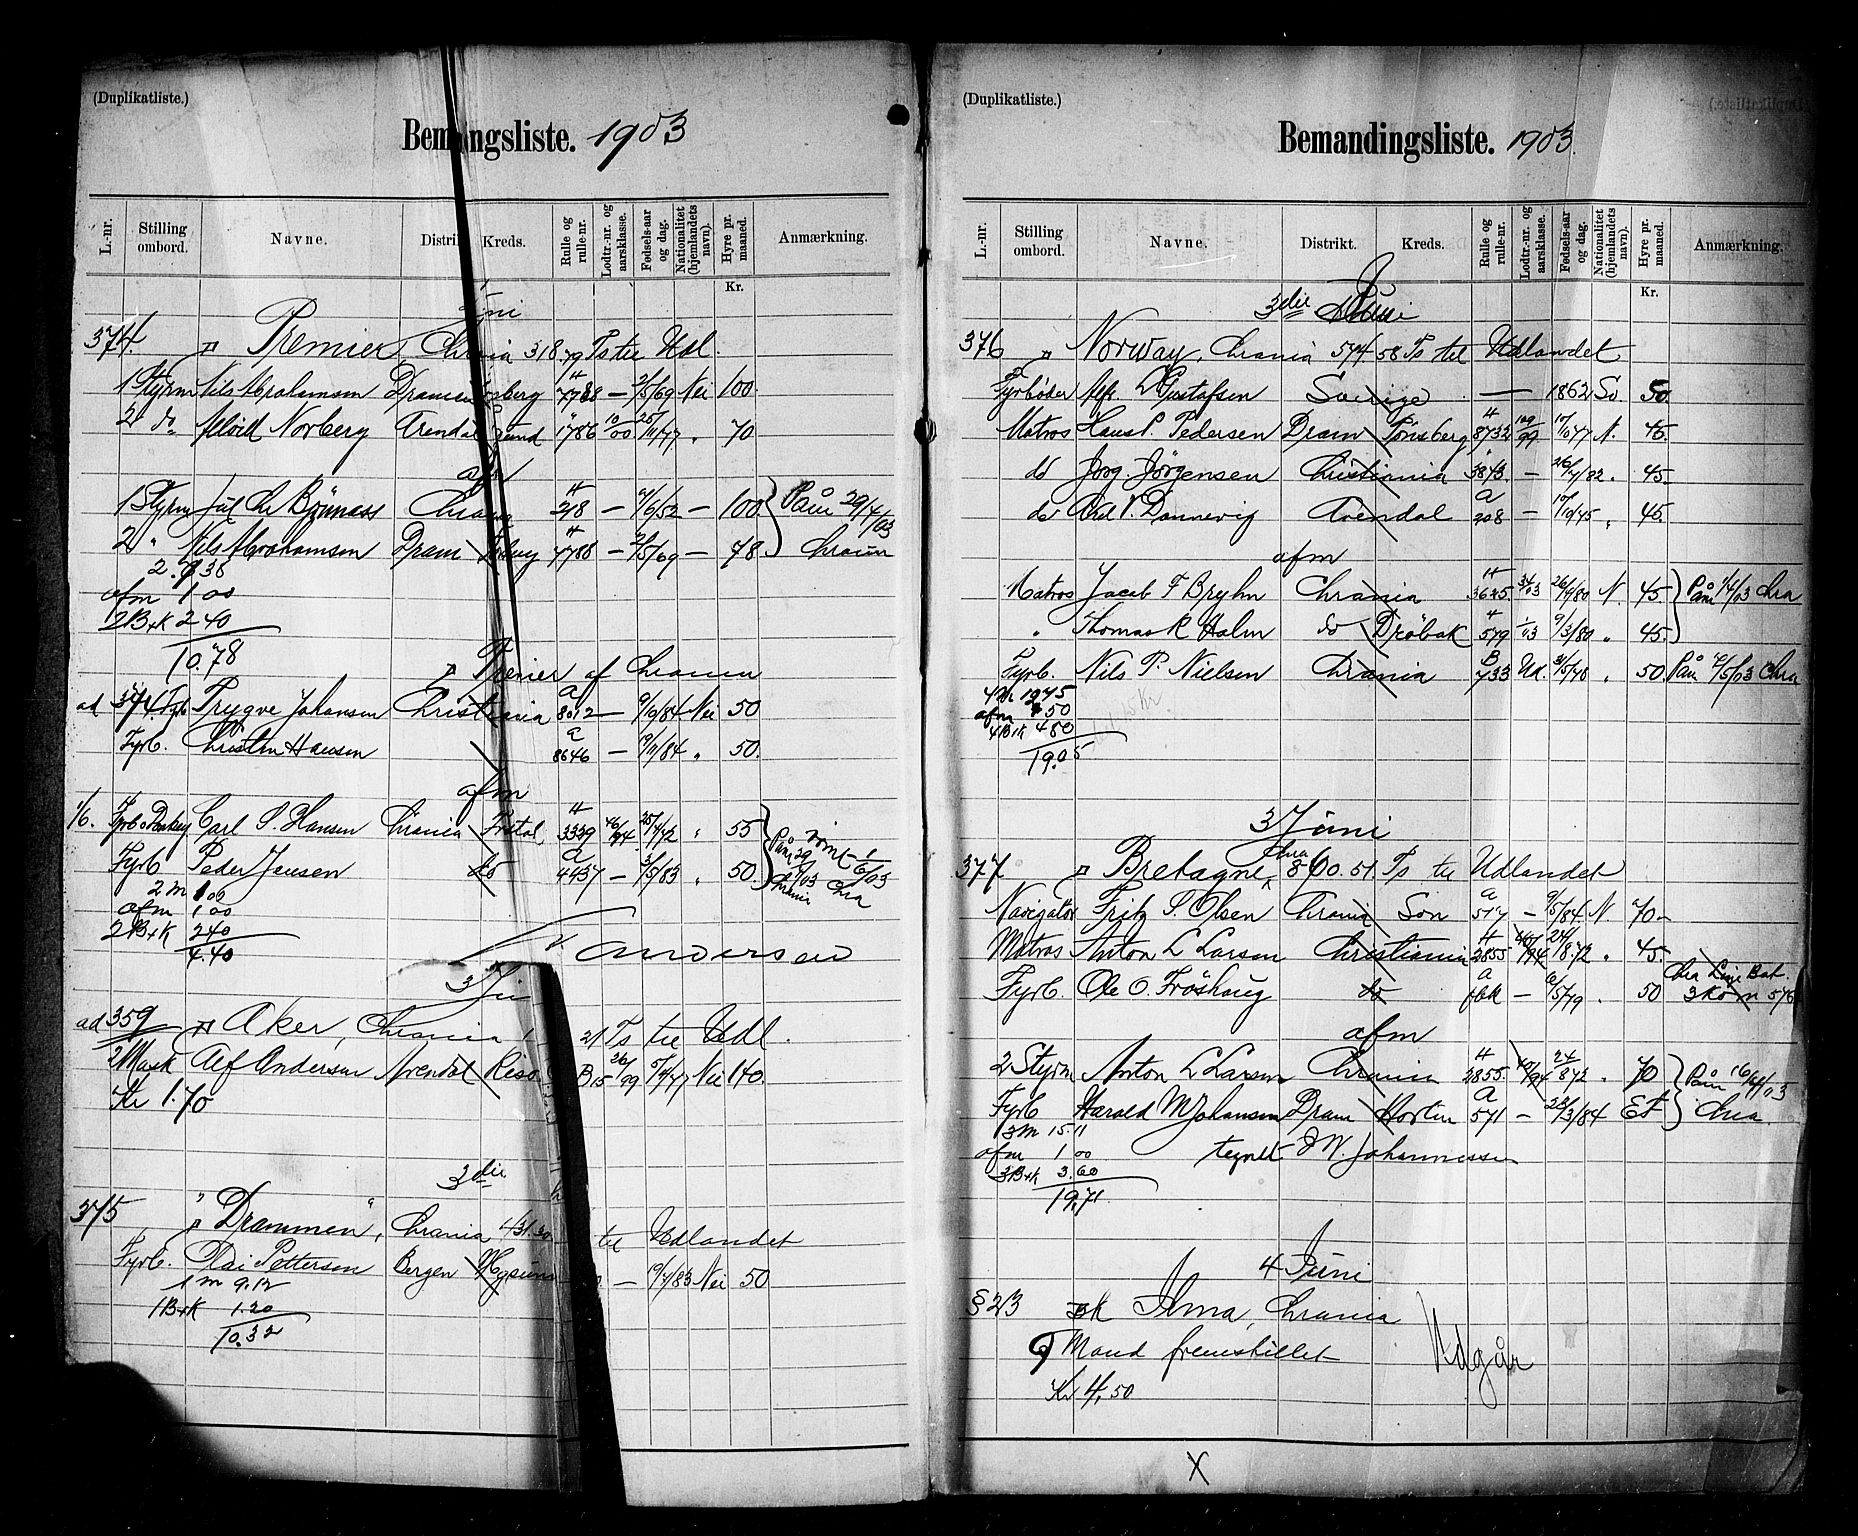 (Duplikatliste.)
Bem ngsliste. 1903
L.-nr.
Stilling ombord.
Navne.
Distrik
Kreds.
Rulle og rulle-nr.
Lodtr.-nr. og aarsklasse.
Fødsels-aar og dag.
Nationalitet (hjemlandets navn).
Hyre pr. maaned.
Anmærkning.
Kr.
374. Premier, Chrania 318.79 Ts til Udl.
1 Styrm Nils Abrahamsen Dramen 4788 — 2/5/69 Nei 100.
2 do Norberg Arendal 1786 10/00 25/11/77 " 70
afm
1 Styrm Jul Chr Bønnass Chrania 218 — 4/6/52 — 100 Påm 29/4/03
2 " Nils Abrahamsen Dram 4788 — 2/5/69 — 78 Chrania
2. 7 38
afm 1 00
2 B+K 2 40
10.78
Premier af Chrania
ad 374. Fyrb Trygve Johansen Christiania a 8012 — 9/10/84 Nei 50
Fyrb. Christen Hansen a 8646 — 9/11/84 " 50.
afm
1/6. Carl S. Hansen Chrania 3339 46/94 25/4/72 " 55
Fyrb Peder Jensen do a 4437 — 3/5/83 " 50
2 m 1 00
afm 1 00
2 B+K 2 40
4.40
Andersen
ad 359 Aker, Chrania 21 Ts til Udl.
2 Mask Alf Andersen Arendal B15 26/99 5/4/77 Nei 140.
Kr 1.70
3die
375 "Drammen", Chrania 431.30 til Udlandet
Fyrb. Olai Pettersen Bergen — 19/4/83 Nei 50
1 m 9.12
1 B+K 1.20
10.32
(Duplikatliste.)
Bemandingsliste. 1903.
L.-nr.
Stilling ombord.
Navne.
Distrikt.
Kreds.
Rulle og rulle-nr.
Lodtr.-nr. og aarsklasse.
Fødsels-aar og dag.
Nationalitet (hjemlandets navn).
Hyre pr. maaned.
Anmærkning.
Kr.
3die Juni
376 Norway, Chrania 574.58 Ts til Udlandet
Fyrbøder Alfr. L Gustafsen Sverige — 1862 Sv 50.
Matros Hans P. Pedersen Dram Tønsberg 8732 129/99 10/10/77 N. 45.
do Jørg. Jørgensen Christiania 3843 — 26/4/82 " 45.
do Ard V. Dannevig Arendal a 208 — 10/10/45 " 45.
afm
Matros Jacob F Bryhn Chrania 3645. 34/03 26/9/80 N. 45. Påm 1/4/03 Chra
" Thomas R Holm do Drøbak 579 1/03 9/3/80 " 45.
Fyrb. Nils P. Nielsen Chrania B 733 Ud. 31/5/78 " 50 Påm 4/5/03 Chra
4 M 12 75
afm 1 50
4 B+K 4 80
19.05
3 Juni
377 Bretagne, Chra 860.51 Ts til Udlandet
Navigatør Fritz S. Olsen Chrania Son a 517 — 9/5/84 N. 70 -
Matros Anton L Larsen Christiania 2855 40/94 24/8.72 " 45.
Fyrb. Ole O. Frøshaug do a fbk — 6/5/79 " 50
afm
2 Styrm Anton L Larsen Chrania 2855. 40/94 24/872 " 70 Påm 16/4/03
Fyrb Harald M Johansen Dram Horten A 571 — 28/3/84 Et Chra.
3 M 15.11
afm 1 00
3 B+K 3.60
19,71.
tegnet M. Johannessen
4 Juni
§ 23 Alma, Chrania
9 Mand fremstillet Udgår
Kr 4,50
X